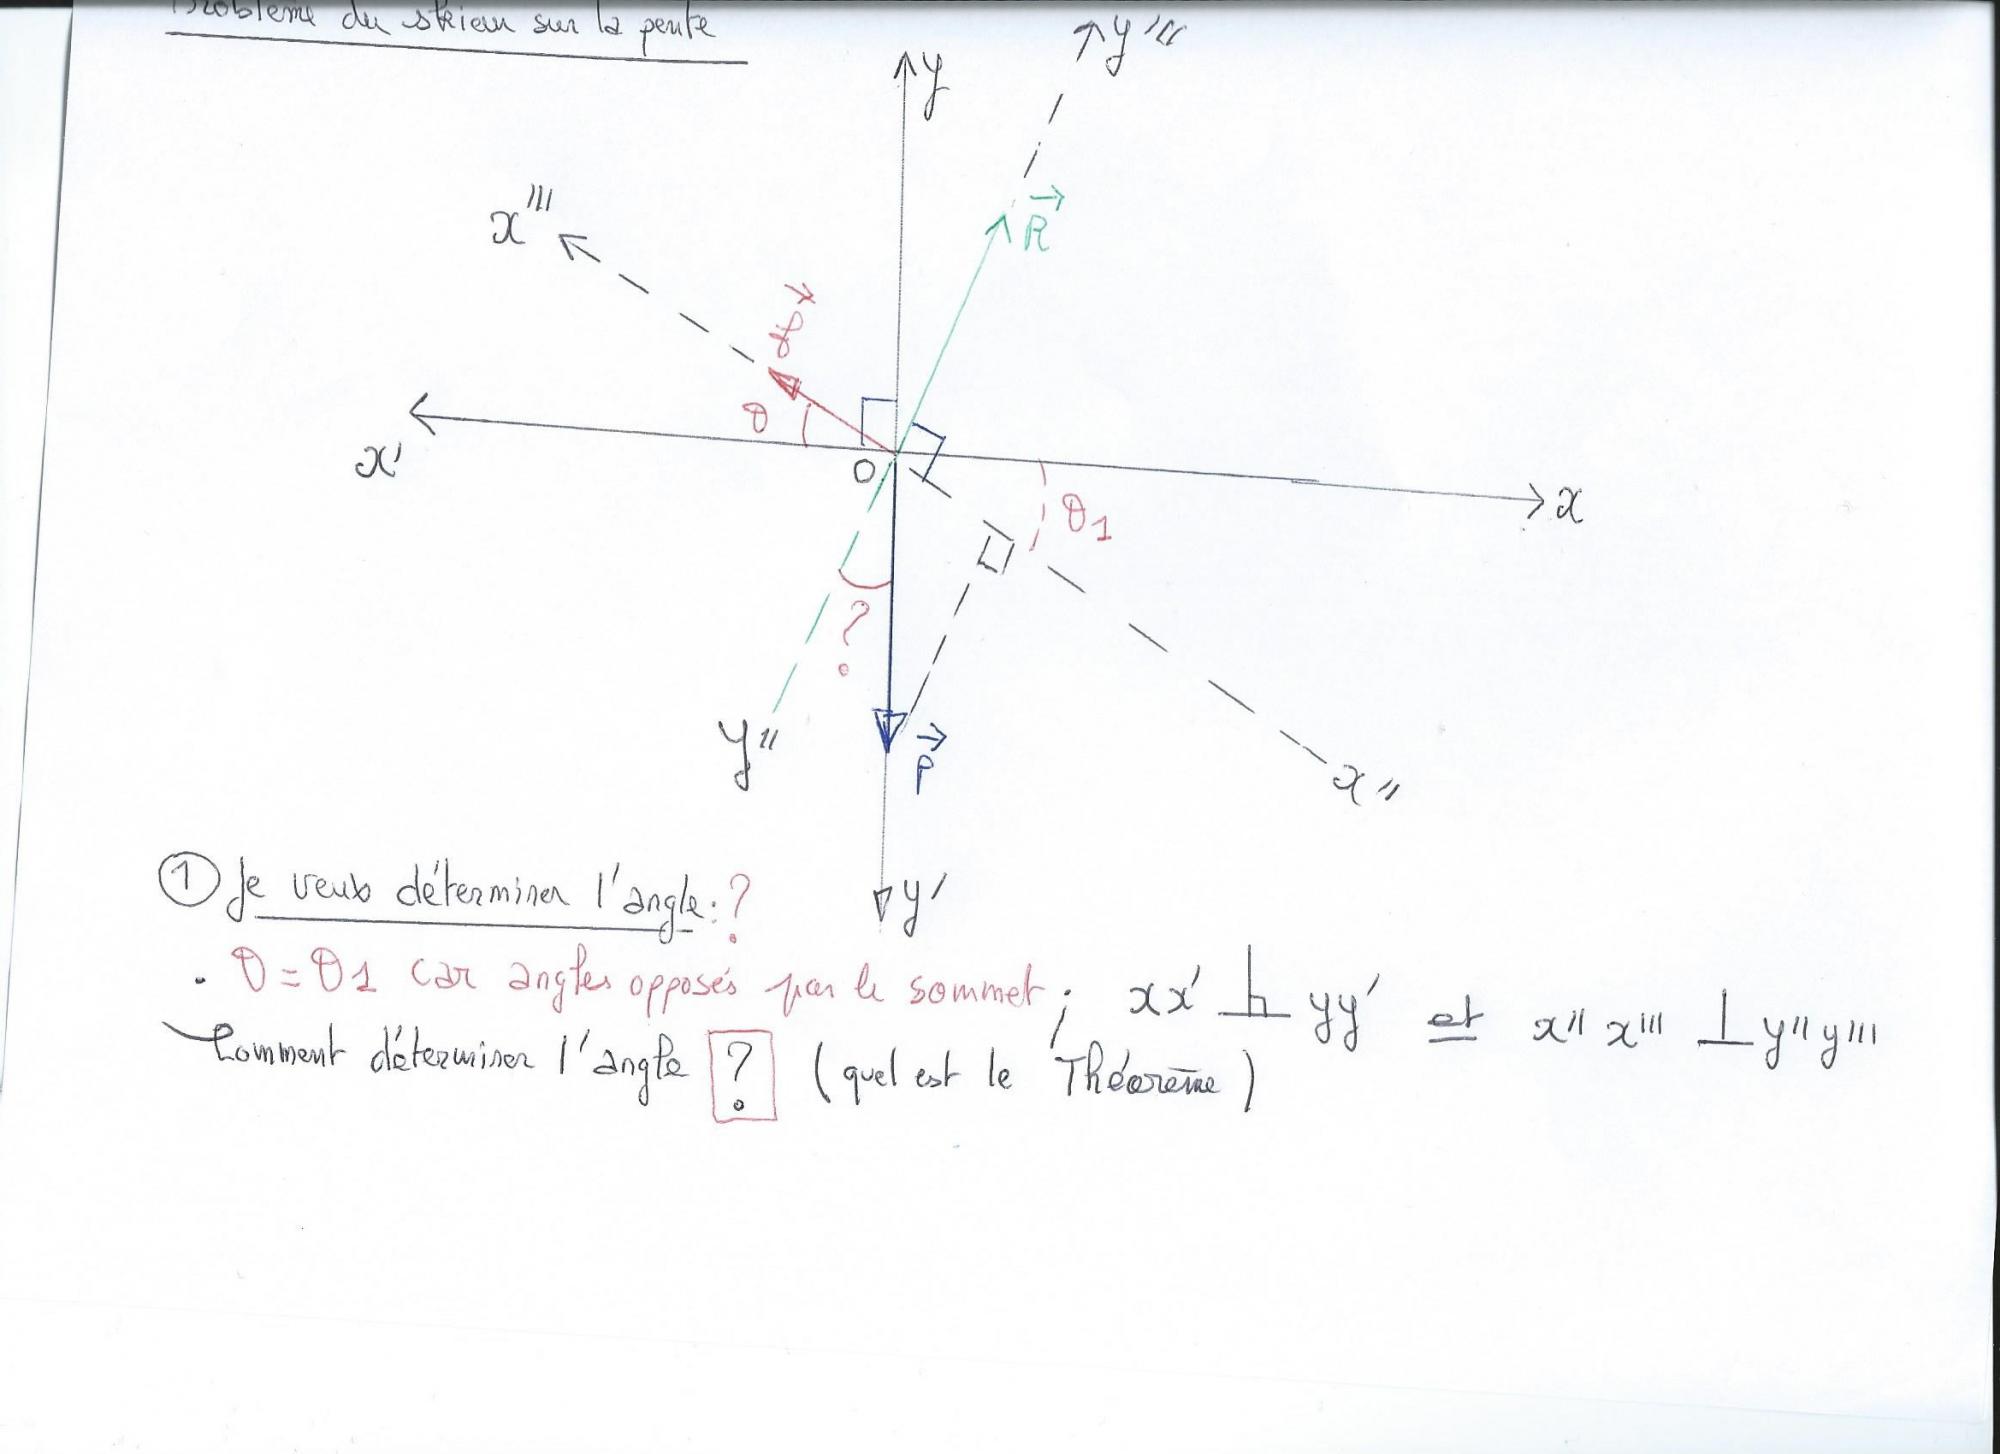 Problème du skieur sur la pente
y
y'''
x'''
R
θ
x'
O
x
θ1
?
y''
P
x''
y'
① Je veux déterminer l'angle : ?
. θ = θ1 car angles opposés par le sommet ; xx' ⊥ yy' et x'' x''' ⊥ y'' y'''
Comment déterminer l'angle ? (quel est le Théorème)